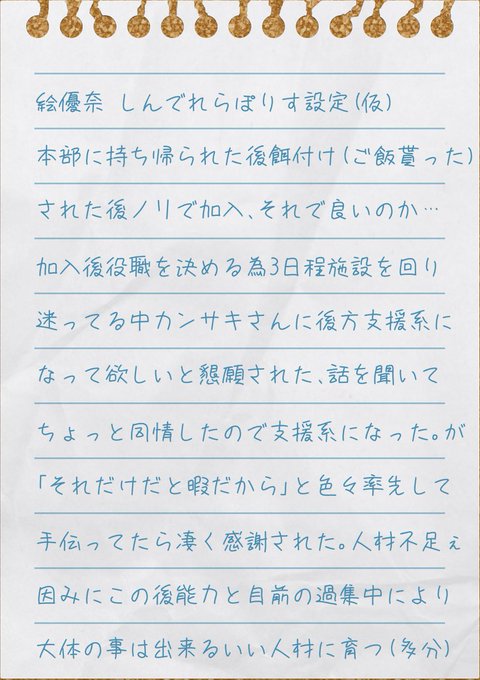 絵優奈 しんでれらぽりす設定(仮)
本部に持ち帰られた後餌付け(ご飯貰った)
された後ノリで加入、それで良いのか…
加入後役職を決める為3日程施設を回り
迷ってる中カンサキさんに後方支援系に
なって欲しいと懇願された、話を聞いて
ちょっと同情したので支援系になった。が
「それだけだと暇だから」と色々率先して
手伝ってたら凄く感謝された。人材不足ぇ
因みにこの後能力と自前の過集中により
大体の事は出来るいい人材に育つ(多分)